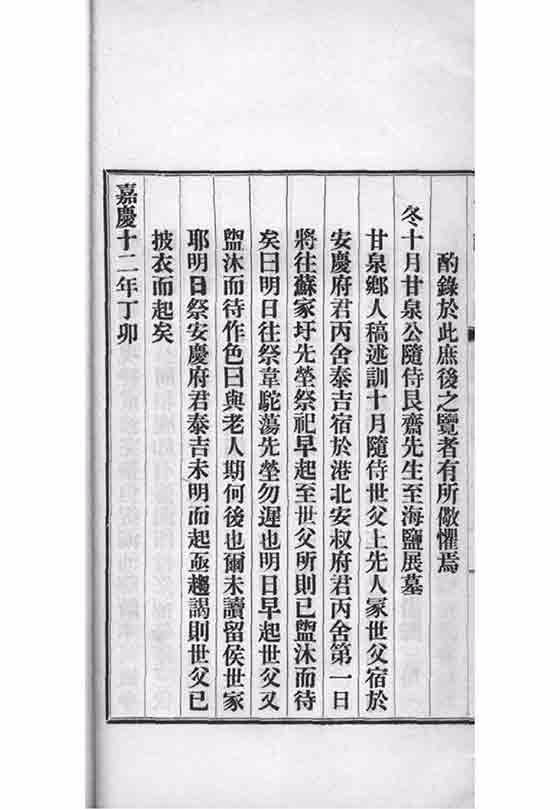 酌錄於此庶後之覽者有所儆懼焉
冬十月甘泉公隨侍艮齋先生至海鹽展墓
甘泉鄉人稿述訓十月隨侍世父上先人冢世父宿於
安慶府君丙舍泰吉宿於港北安叔府君丙舍第一日
將往蘇家圩先塋祭祀早起至世父所則已盥沐而待
矣曰明日往祭韋駝蕩先塋勿遲也明日早起世父又
盥沐而待作色曰與老人期何後也爾未讀留侯世家
耶明日祭安慶府君泰吉未明而起亟趨謁則世父已
披衣而起矣
嘉慶十二年丁卯